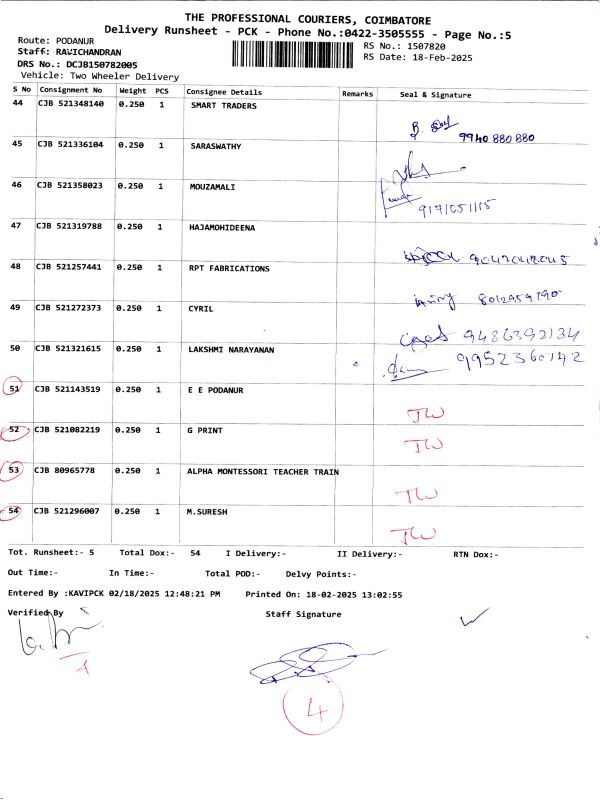 THE PROFESSIONAL COURIERS, COIMBATORE
Delivery Runsheet - PCK - Phone No.:0422-3505555 - Page No.:5
Route: PODANUR
RS No.: 1507820
Staff: RAVICHANDRAN
RS Date: 18-Feb-2025
DRS No.: DCJB150782005
Vehicle: Two Wheeler Delivery
S No Consignment No Weight PCS Consignee Details Remarks Seal & Signature
44 CJB 521348140 0.250 1 SMART TRADERS
9940 880 880
45 CJB 521336104 0.250 1 SARASWATHY
46 CJB 521358023 0.250 1 MOUZAMALI
47 CJB 521319788 0.250 1 HAJAMOHIDEENA
48 CJB 521257441 0.250 1 RPT FABRICATIONS
49 CJB 521272373 0.250 1 CYRIL
9486392134
50 CJB 521321615 0.250 1 LAKSHMI NARAYANAN
9952360142
51 CJB 521143519 0.250 1 E E PODANUR
TW
52 CJB 521082219 0.250 1 G PRINT
TW
53 CJB 80965778 0.250 1 ALPHA MONTESSORI TEACHER TRAIN
TW
54 CJB 521296007 0.250 1 M.SURESH
TW
Tot. Runsheet:- 5 Total Dox:- 54 I Delivery:- II Delivery:- RTN Dox:-
Out Time:- In Time:- Total POD:- Delvy Points:-
Entered By :KAVIPCK 02/18/2025 12:48:21 PM Printed On: 18-02-2025 13:02:55
Verified By Staff Signature
4